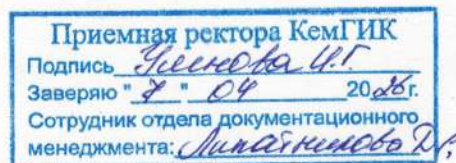 Приемная ректора КемГИК
Подпись Умнова И.Г.
Заверяю "7" 04 2026г.
Сотрудник отдела документационного
менеджмента: Липатникова Д.